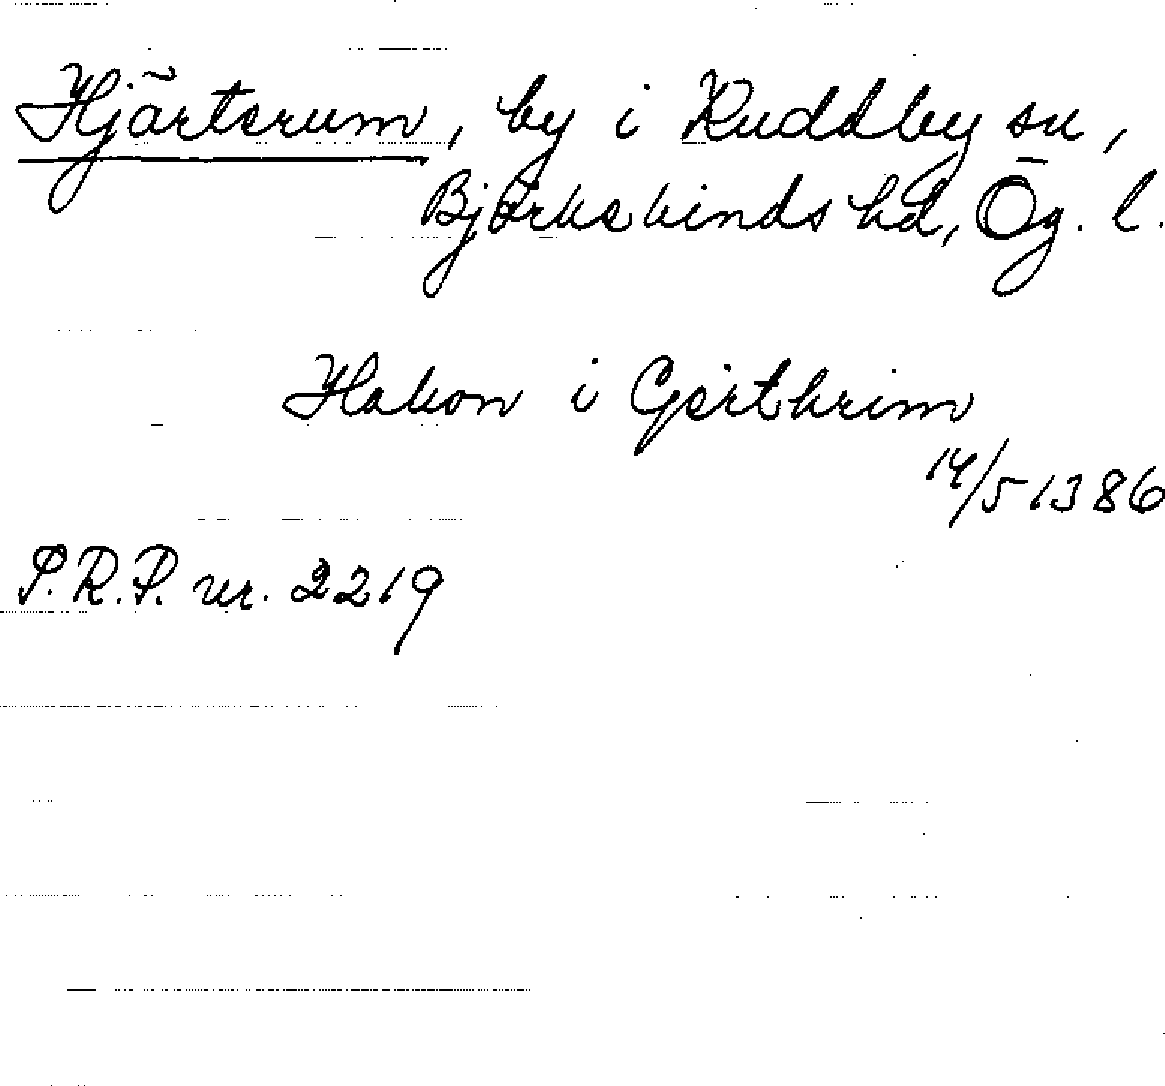 Hjärterum, by i Kuddby sn,
Björkekinds hd, Ög. l.
Hakon i Gerthrim
14/5 1386
P.R.P. nr. 2219